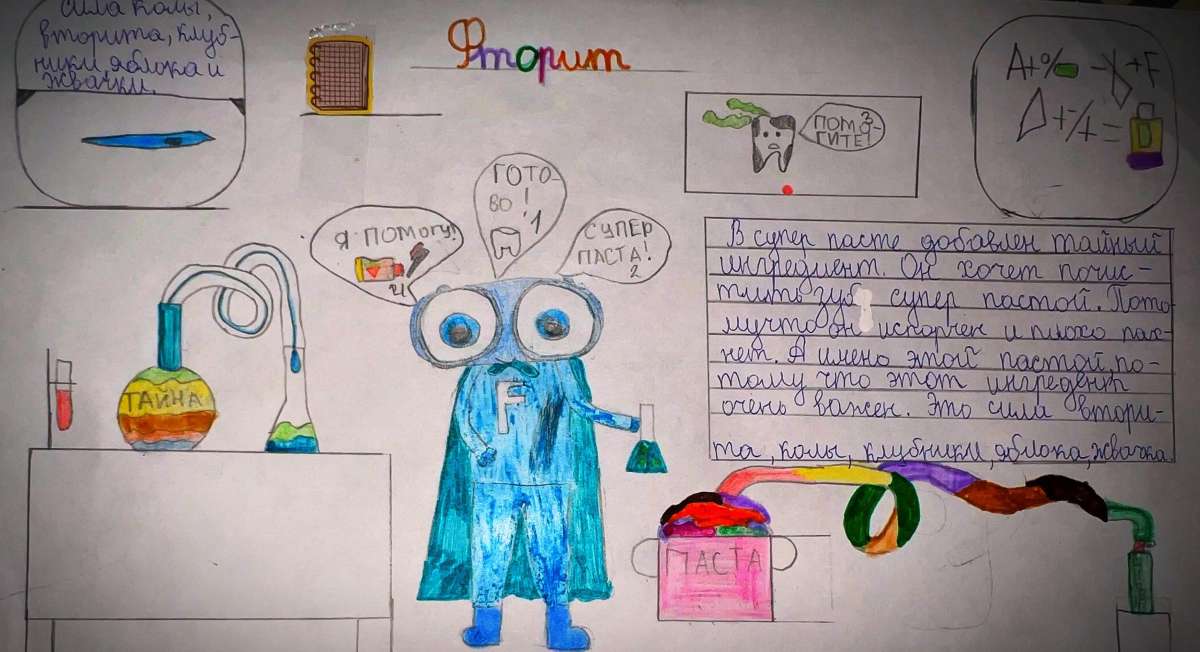 сила колы,
вторита, клуб-
ники яблока и
жвачки.
Фторит
ПОМО-
ГИТЕ!
3
A+%
-
+F
+-/+=
ГОТО-
ВО!
1
Я ПОМОГУ!
4
СУПЕР
ПАСТА!
2
F
ТАЙНА
В супер пасте добавлен тайный
ингредиент. Он хочет почис-
тить зуб супер пастой. Пото
мучто он испорчен и плохо пах-
нет. А имено этой пастой, по-
тому что этот ингредент
очень важен. Это сила втори-
та, колы, клубники, яблока, жвачка
ПАСТА